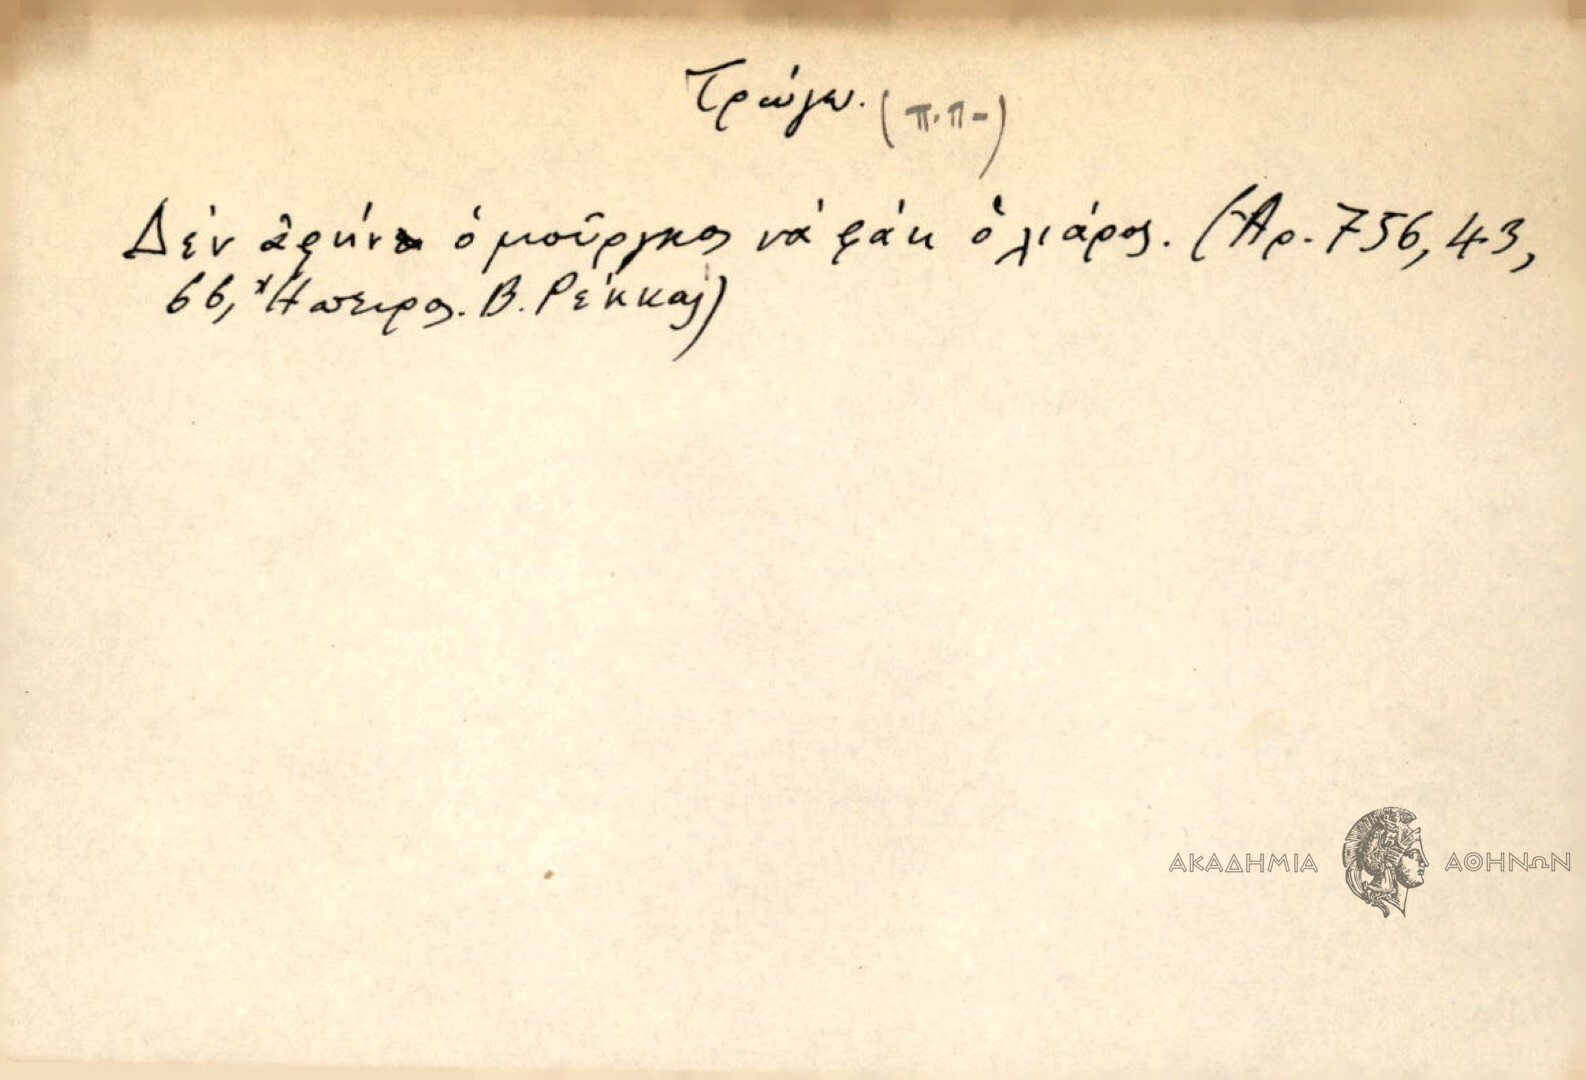 Τρώγω. (π.π-)
Δὲν ἀφήνει ὁ μοῦργκος νὰ φάῃ ὁ λιάρος. (Ἀρ. 756, 43,
66, Ἤπειρος. Β. Ρέκκας)
ΑΚΑΔΗΜΙΑ ΑΘΗΝΩΝ